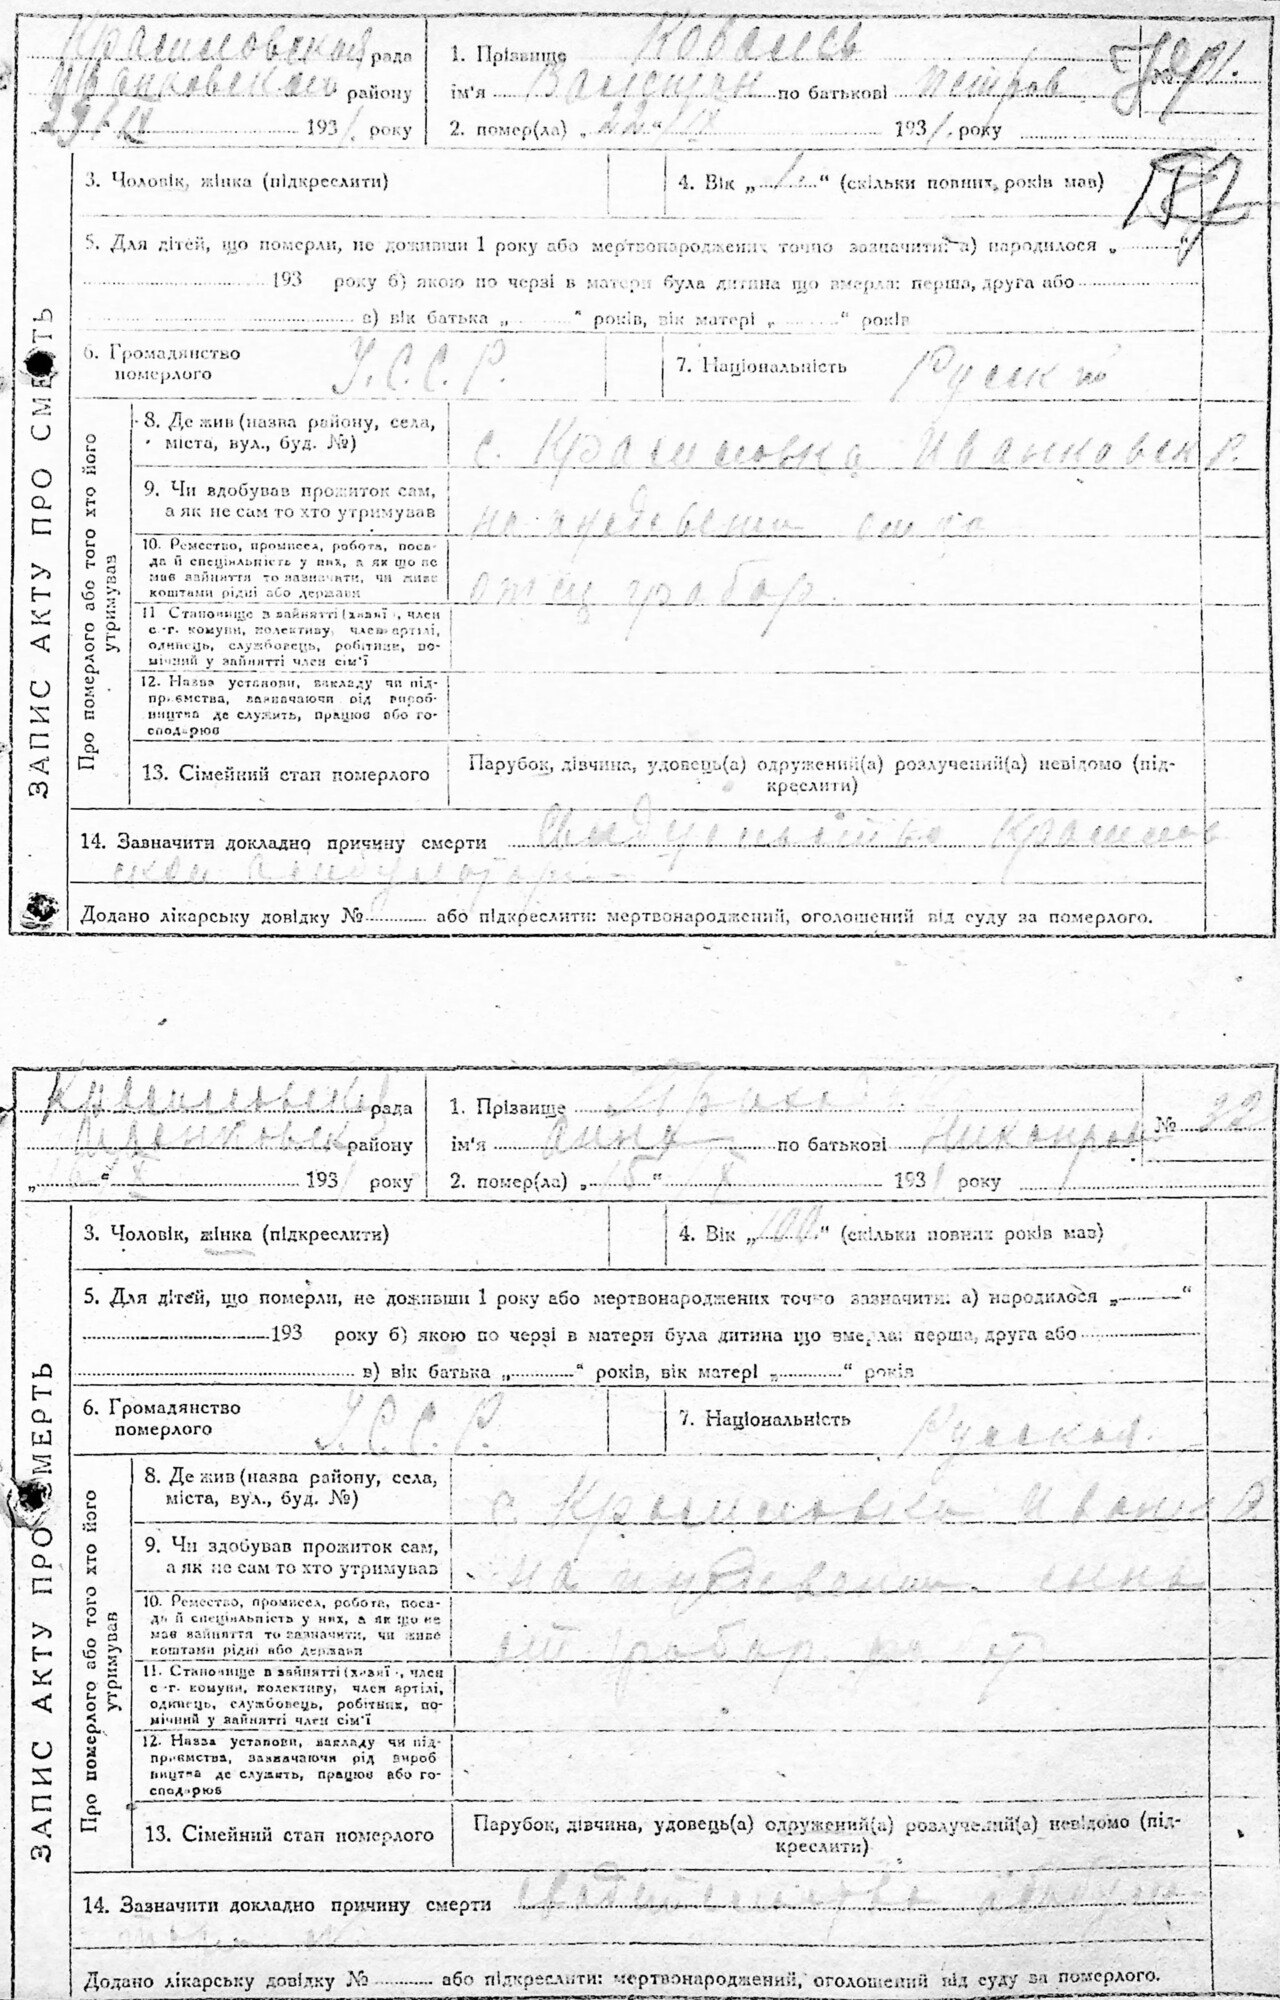 Красиловской рада
Иванковского району
23/IX 1931. року
1. Прізвище Ковалев
ім'я Валентин по батькові Петров.
2. помер(ла) „22“/IX 1931. року
№
3. Чоловік, жінка (підкреслити)
4. Вік „1“ (скільки повних років мав)
5. Для дітей, що померли, не доживши 1 року або мертвонароджених точно зазначити: а) народилося „ “
193 року б) якою по черзі в матери була дитина що вмерла: перша, друга або
в) вік батька „ “ років, вік матері „ “ років
6. Громадянство
померлого
У.С.С.Р.
7. Національність
Русский
ЗАПИС АКТУ ПРО СМЕРТЬ
Про померлого або того хто його
утримував
8. Де жив (назва району, села,
міста, вул., буд. №)
с. Красиловка Иванковск р.
9. Чи здобував прожиток сам,
а як не сам то хто утримував
на иждевении отца
10. Ремество, промисел, робота, поса-
да й спеціяльність у них, а як що не
мав зайняття то зазначити, чи живе
коштами рідні або держави
отец грабар.
11 Становище в зайнятті (хазяї, член
с.-г. комуни, колективу, член артілі,
одинець, службовець, робітник, по-
мічний у зайнятті член сім'ї
12. Назва установи, закладу чи під-
приємства, зазначаючи рід вироб-
ництва де служить, працює або го-
сподарює
13. Сімейний стан померлого
Парубок, дівчина, удовець(а) одружений(а) розлучений(а) невідомо (під-
креслити)
14. Зазначити докладно причину смерти
Додано лікарську довідку № або підкреслити: мертвонароджений, оголошений від суду за померлого.
Красиловской рада
Иванковск району
„16“/X 1931 року
1. Прізвище
ім'я Анна по батькові Никифоров
2. помер(ла) „15“/X 1931 року
№ 32
3. Чоловік, жінка (підкреслити)
4. Вік „100“ (скільки повних років мав)
5. Для дітей, що померли, не доживши 1 року або мертвонароджених точно зазначити: а) народилося „ “
193 року б) якою по черзі в матери була дитина що вмерла: перша, друга або
в) вік батька „ “ років, вік матері „ “ років
6. Громадянство
померлого
У.С.С.Р.
7. Національність
Русская.
ЗАПИС АКТУ ПРО СМЕРТЬ
Про померлого або того хто його
утримував
8. Де жив (назва району, села,
міста, вул., буд. №)
с. Красиловка
9. Чи здобував прожиток сам,
а як не сам то хто утримував
на иждевении сына
10. Ремество, промисел, робота, поса-
да й спеціяльність у них, а як що не
мав зайняття то зазначити, чи живе
коштами рідні або держави
11. Становище в зайнятті (хазяї, член
с.-г. комуни, колективу, член артілі,
одинець, службовець, робітник, по-
мічний у зайнятті член сім'ї
12. Назва установи, закладу чи під-
приємства, зазначаючи рід вироб
ництва де служить, працює або го-
сподарює
13. Сімейний стан померлого
Парубок, дівчина, удовець(а) одружений(а) розлучений(а) невідомо (під-
креслити)
14. Зазначити докладно причину смерти
Додано лікарську довідку № або підкреслити: мертвонароджений, оголошений від суду за померлого.